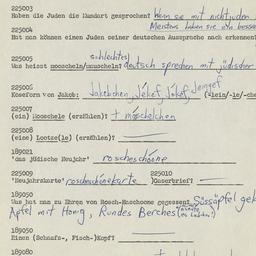 225003
Haben die Juden die Mundart gesprochen? Wenn sie mit nichtjuden
Meistens haben sie ein besse
225004
Hat man können einen Juden seiner deutschen Aussprache nach erkennen?
225005
schlechtes
Was heisst mooscheln/mauscheln? deutsch sprechen mit jüdischer
225006
Koseform von Jakob: Jakebchen, Jékef, Jokef, (-lein/-le/-che
225007
(ein) Mooschele (erzählen)? + moschelchen
225008
(eine) Lootze(le) (erzählen)?
189021
'das jüdische Neujahr' roscheschone
225009 225010
'Neujahrskarte' roscheschonekarte )Gaserbrief?
189050
Was hat man zu Ehren von Rosch-Haschoone gegessen? Süssäpfel gek
Apfel mit Honig, Rundes Berches
189050
Einen (Schaafs-, Fisch-)Kopf?
189080